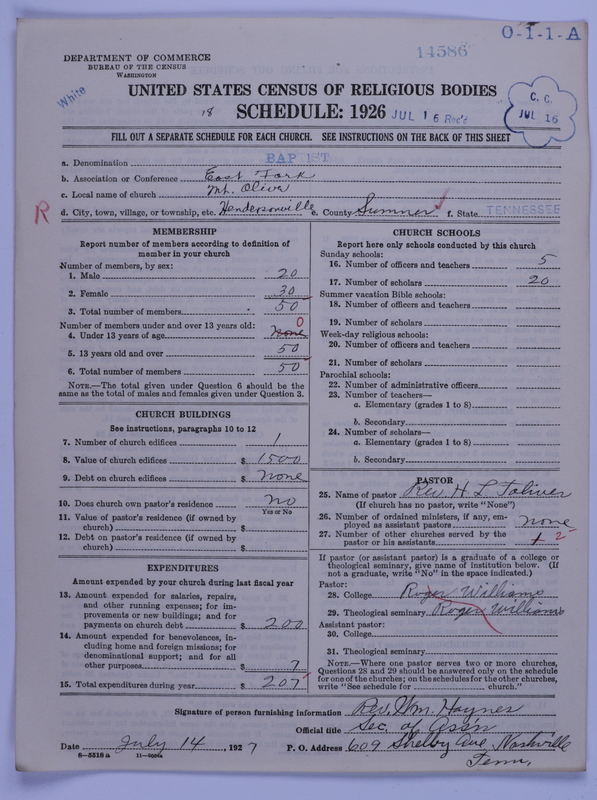 14586
O-1-1-A
DEPARTMENT OF COMMERCE
BUREAU OF THE CENSUS
WASHINGTON
White
UNITED STATES CENSUS OF RELIGIOUS BODIES
18 SCHEDULE: 1926 JUL 16 Rec'd
C. C.
JUL 16
FILL OUT A SEPARATE SCHEDULE FOR EACH CHURCH. SEE INSTRUCTIONS ON THE BACK OF THIS SHEET
a. Denomination BAPTIST
b. Association or Conference East Fork
c. Local name of church Mt. Olive
R d. City, town, village, or township, etc. Hendersonville e. County Sumner f. State TENNESSEE
MEMBERSHIP
Report number of members according to definition of
member in your church
Number of members, by sex:
1. Male 20
2. Female 30
3. Total number of members 50
Number of members under and over 13 years old: 0
4. Under 13 years of age None
5. 13 years old and over 50
6. Total number of members 50
NOTE.—The total given under Question 6 should be the
same as the total of males and females given under Question 3.
CHURCH BUILDINGS
See instructions, paragraphs 10 to 12
7. Number of church edifices 1
8. Value of church edifices $ 1500
9. Debt on church edifices $ None
10. Does church own pastor's residence no
Yes or No
11. Value of pastor's residence (if owned by
church) $
12. Debt on pastor's residence (if owned by
church) $
EXPENDITURES
Amount expended by your church during last fiscal year
13. Amount expended for salaries, repairs,
and other running expenses; for im-
provements or new buildings; and for
payments on church debt $ 200
14. Amount expended for benevolences, in-
cluding home and foreign missions; for
denominational support; and for all
other purposes $ 7
15. Total expenditures during year $ 207
CHURCH SCHOOLS
Report here only schools conducted by this church
Sunday schools:
16. Number of officers and teachers 5
17. Number of scholars 20
Summer vacation Bible schools:
18. Number of officers and teachers
19. Number of scholars
Week-day religious schools:
20. Number of officers and teachers
21. Number of scholars
Parochial schools:
22. Number of administrative officers
23. Number of teachers—
a. Elementary (grades 1 to 8)
b. Secondary
24. Number of scholars—
a. Elementary (grades 1 to 8)
b. Secondary
PASTOR
25. Name of pastor Rev. H. L. Toliver
(If church has no pastor, write "None")
26. Number of ordained ministers, if any, em-
ployed as assistant pastors none
27. Number of other churches served by the
pastor or his assistants 1 2
If pastor (or assistant pastor) is a graduate of a college or
theological seminary, give name of institution below. (If
not a graduate, write "No" in the space indicated.)
Pastor:
28. College Roger Williams
29. Theological seminary Roger Williams
Assistant pastor:
30. College
31. Theological seminary
NOTE.—Where one pastor serves two or more churches,
Questions 28 and 29 should be answered only on the schedule
for one of the churches; on the schedules for the other churches,
write "See schedule for church."
Signature of person furnishing information Rev. Wm. Haynes
Official title Sec. of Ass'n
Date July 14, 1927 P. O. Address 609 Shelby Ave, Nashville
Tenn.
8-5518a 11-9024a